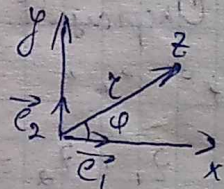 y
z
r
e₂
φ
e₁
x